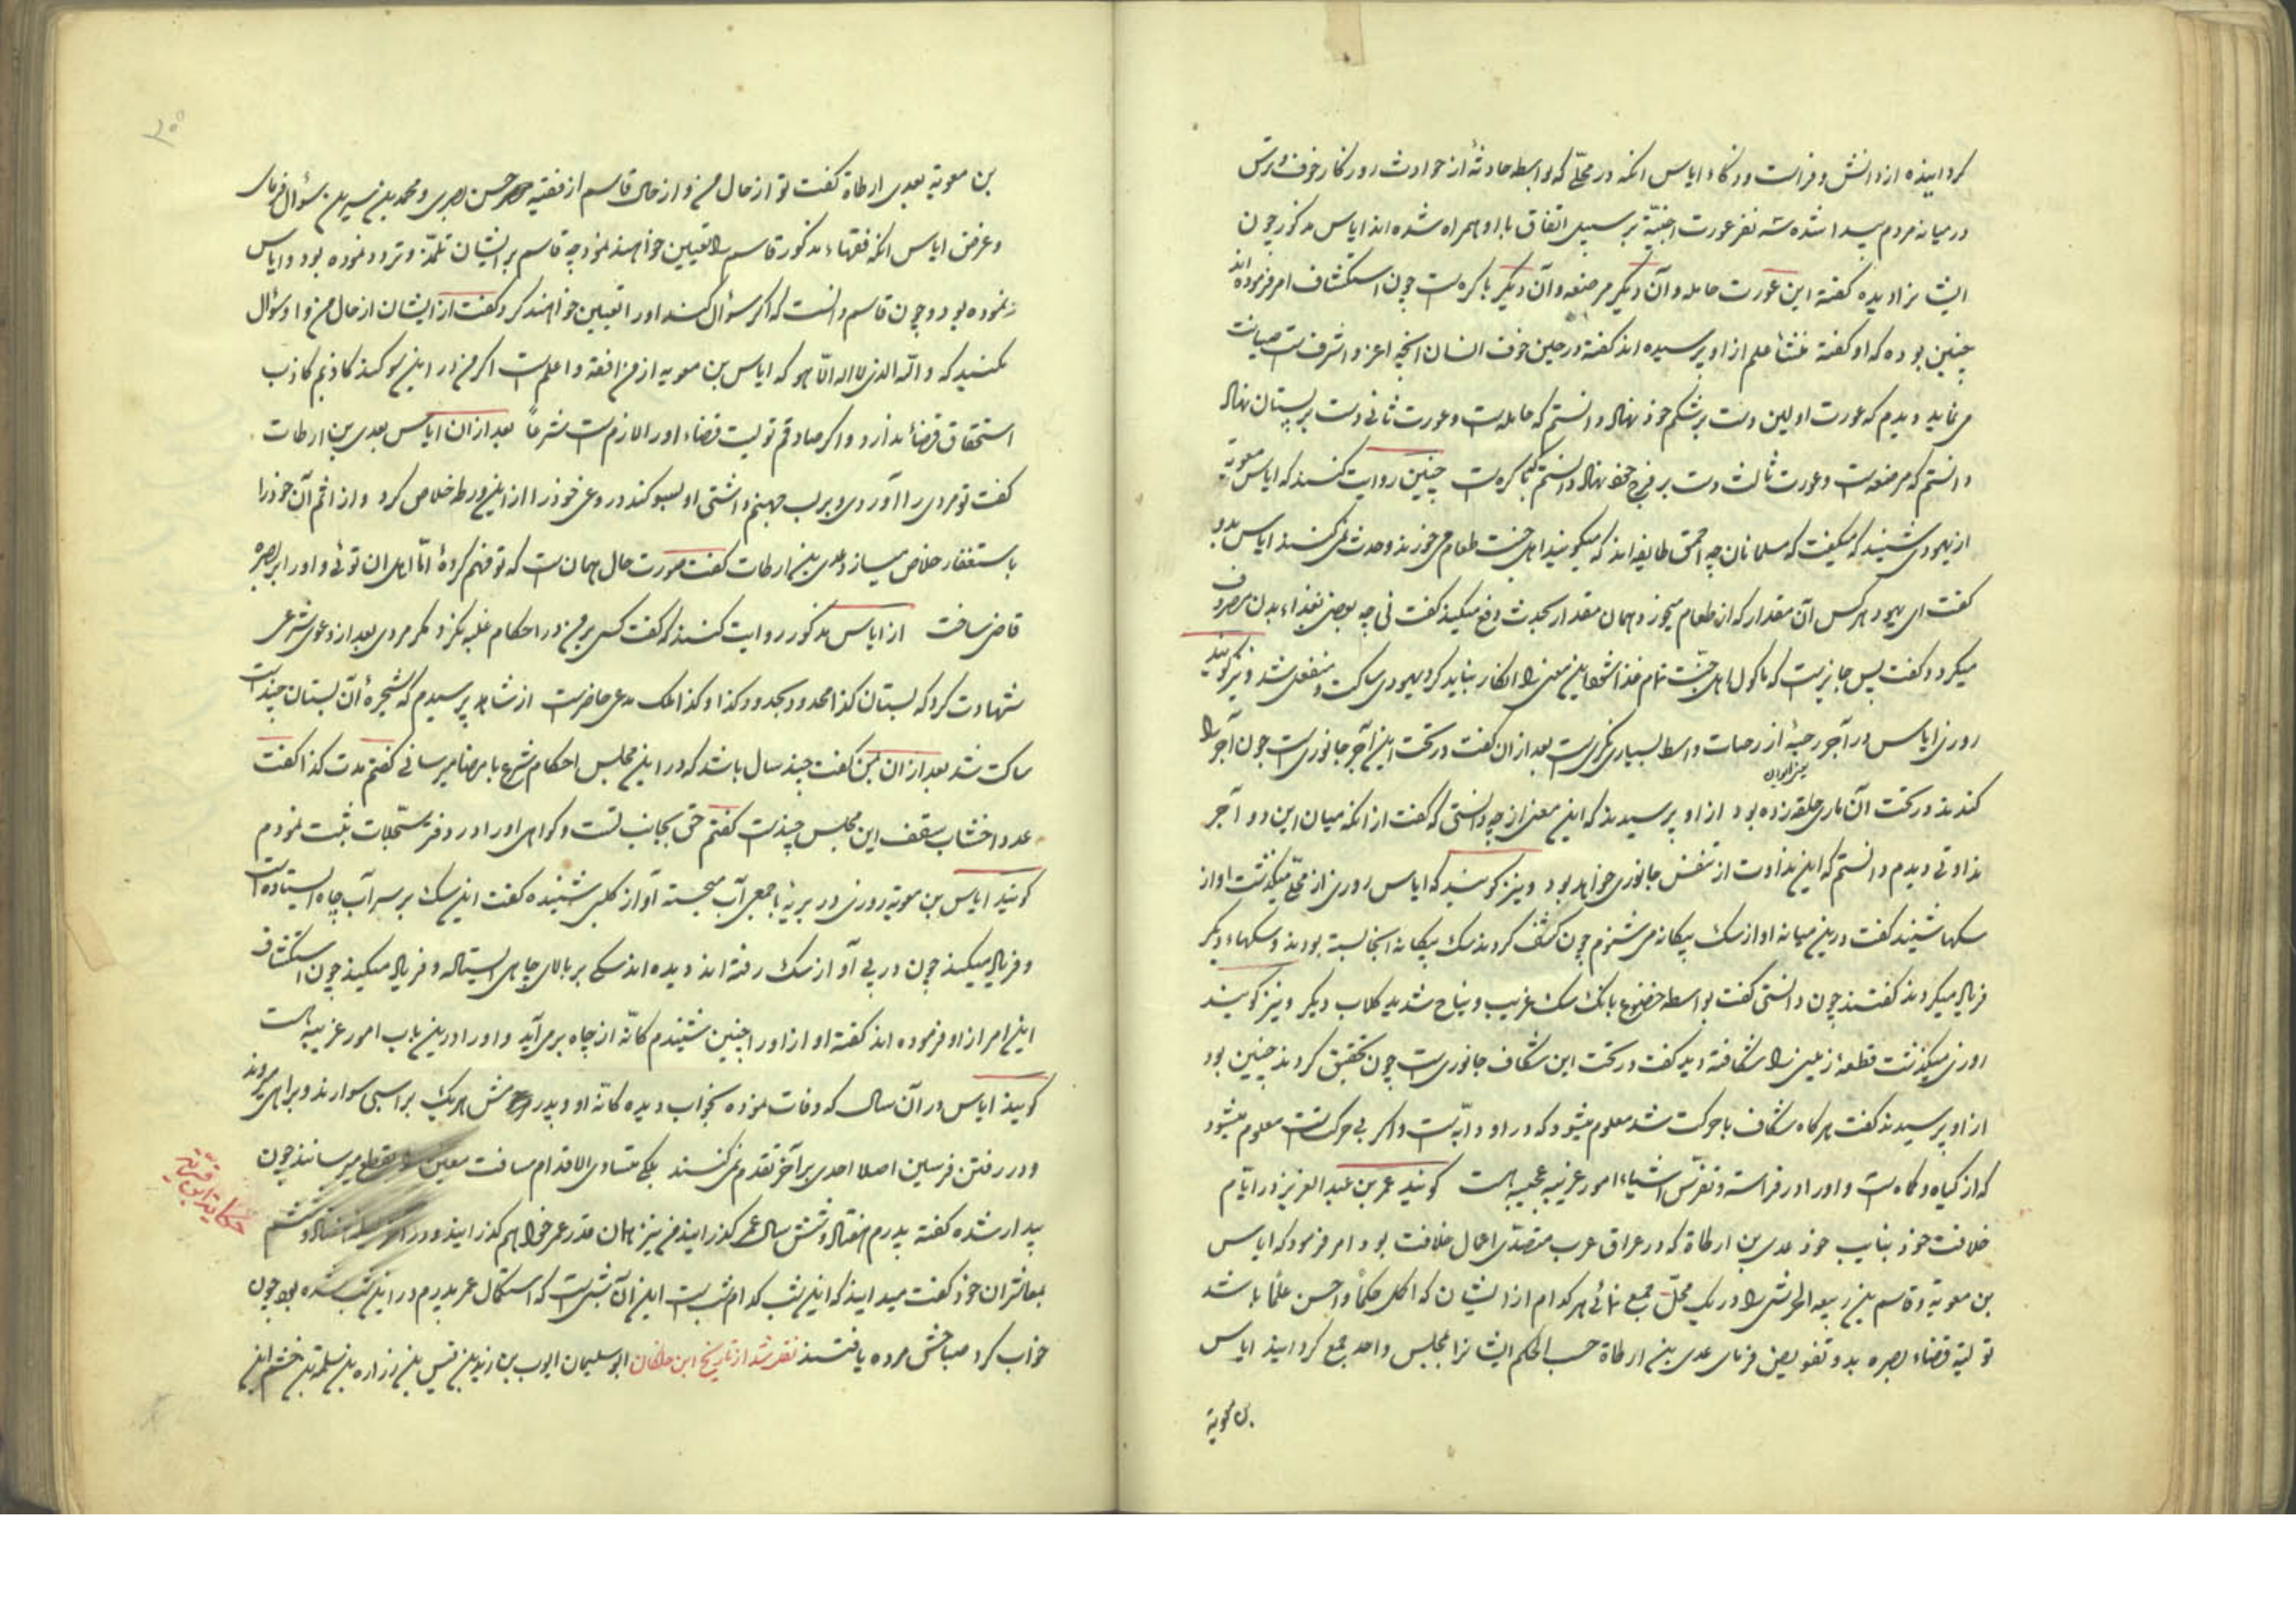 کردانیده از دانش و فراست و ذکاء ایاس انکه در محلّی که بواسطه حادثهٔ از حوادث روزکار خوف و ترس
در میانه مردم پیدا شده سه نفر عورت اجنبیّة بر سبیل اتفاق با او همراه شده اند ایاس مذکور چون
ایشانرا دیده کفته این عورت حامله و آن دیکر مرضعه و آن دیکر باکره است چون استکشاف امر فرموده اند
چنین بوده که او کفته منشأ علم از او پرسیده اند کفته در حین خوف انسان آنچه اعز و اشرف است صیانت
می نماید دیدم که عورت اولین دست بر شکم خود نهاد دانستم که حامله است و عورت ثانی دست بر پستان نهاد
دانستم که مرضعه است و عورت ثالث دست بر فرج خود نهاد دانستم که باکره است چنین روایت کنند که ایاس معویة
از یهودی شنید که میکفت که مسلمانان چه احمق طایفه اند که میکویند اهل جنت طعام می خورند و حدث نمی کنند ایاس بدو
کفت ای یهود هر کس آن مقدار که از طعام میخورد همان مقدار بحدث دفع میکند کفت نی چه بعضی بغذاء بدن مصروف
میکردد کفت پس جایز است که ماکول اهل جنّت تمام غذا شود این معنی را انکار نباید کرد یهودی ساکت و منفعل شد و نیز کویند
روزی ایاس در آجر رحبهٔ از رحبات واسط بسیاری نکریست بعد از ان کفت در تحت این آجر جانوری است چون آجر را
یعنی ایوان
کندند در تحت آن ماری حلقه زده بود از او پرسیدند که این معنی از چه دانستی که کفت از انکه میان این دو آجر
نداوتی دیدم دانستم که این نداوت از تنفس جانوری خواهد بود و نیز کویند که ایاس روزی از محلّی میکذشت اواز
سکها شنید کفت درین میانه اواز سک بیکانه می شنوم چون کشف کردند سک بیکانه انجا بسته بودند و سکهاء دیکر
فریاد میکردند کفتند چون دانستی کفت بواسطه خضوع بانک سک غریب و نباح شدید کلاب دیکر و نیز کویند
روزی میکذشت قطعهٔ زمینی را شکافته دید کفت در تحت این شکاف جانوری است چون تحقیق کردند چنین بود
از او پرسیدند کفت هر کاه شکاف با حرکت شد معلوم میشود که در او دابّه است و اکر بی حرکت است معلوم میشود
که از کیاه و کماه است و او را در فراسته و تفرّس اشیاء امور غریبه عجیبه است کویند عمر بن عبد العزیز در ایّام
خلافت خود بنایب خود عدی بن ارطاة که در عراق عرب متصدّی اعمال خلافت بود امر فرمود که ایاس
بن معویة و قاسم بن ربیعه الحرشی را در یک محلّ جمع نمائی هر کدام از ایشان که اکمل حکماً و احسن علماً باشد
تولیة قضاء بصره بدو تفویض فرمای عدی بن ارطاة حسب الحکم ایشانرا بمجلس واحد جمع کردانید ایاس
بن معویة
بن معویة بعدی ارطاة کفت تو از حال من و از حال قاسم از فقیه حسن بصری و محمد بن سیرین سؤال فرمای
و غرض ایاس انکه فقهاء مذکور قاسم را تعیین خواهند نمود چه قاسم بر ایشان تلمّذ و تردد نموده بود و ایاس
ننموده بود و چون قاسم دانست که اکر سؤال کنند او را تعیین خواهند کرد کفت از ایشان از حال من و او سؤال
مکنید که و الله الذی لا اله الا هو که ایاس بن معویه از من افقه و اعلم است اکر من در این سوکند کاذبم کاذب
استحقاق قضاء ندارد و اکر صادقم تولیت قضاء او را لازم است شرعاً بعد از ان ایاس بعدی بن ارطات
کفت تو مردی را آوردی و بر لب جهنم داشتی او بسوکند دروغی خود را از این ورطه خلاص کرد و از اثم آن خود را
باستغفار خلاص میسازد عدی بن ارطات کفت صورت حال همان است که تو فهم کردهٔ امّا اهل ان توئی و او را بر بصره
قاضی ساخت از ایاس مذکور روایت کنند که کفت کسی بر من در احکام غلبه نکرد مکر مردی بعد از دعوی شرعی
شهادت کرد که بستان کذا محدود بحدود کذا و کذا ملک مدعی حاضر است از شاهد پرسیدم که شجرهٔ آن بستان چند است
ساکت شد بعد از ان بمن کفت چند سال باشد که در این مجلس احکام شرع بامضا میرسانی کفتم مدت کذا کفت
عدد اخشاب سقف این مجلس چند است کفتم حق بجانب تست و کواهی او را در دفتر سجّلات ثبت نمودم
کویند ایاس بن معویة روزی در بریّه با جمعی آب میجستند آواز کلبی شنیده کفت این سک بر سر آب چاه ایستاده است
و فریاد میکند چون در پی آواز سک رفته اند دیده اند سکی بر بالای چاهی ایستاده و فریاد میکند چون استکشاف
این امر از او فرموده اند کفته اواز او را چنین شنیدم کانّه از چاه برمی آید و او را درین باب امور غریبه است
کویند ایاس در آن سال که وفات نموده بخواب دیده کانّه او و پدرش هر یک بر اسبی سوارند و براهی میروند
و در رفتن فرسین اصلا احدی بر آخر تقدم نمی کنند بلکه متساوی الاقدام مسافت معین بقطع میرسانند چون
بیدار شده کفته پدرم هفتاد و شش سال عمر کذرانید من نیز همان قدر عمر خواهم کذرانید و در
بمعاشران خود کفت میدانید که این شب کدام شب است این آن شبی است که استکمال عمر پدرم در این شب شده بود چون
خواب کرد صباحش مرده یافتند نقل شد از تاریخ ابن خلکان ابو سلیمان ایوب بن زید بن قیس بن زراره بن سلمه بن خشم بن
حکایة ابن قرّیة
۲۰۰